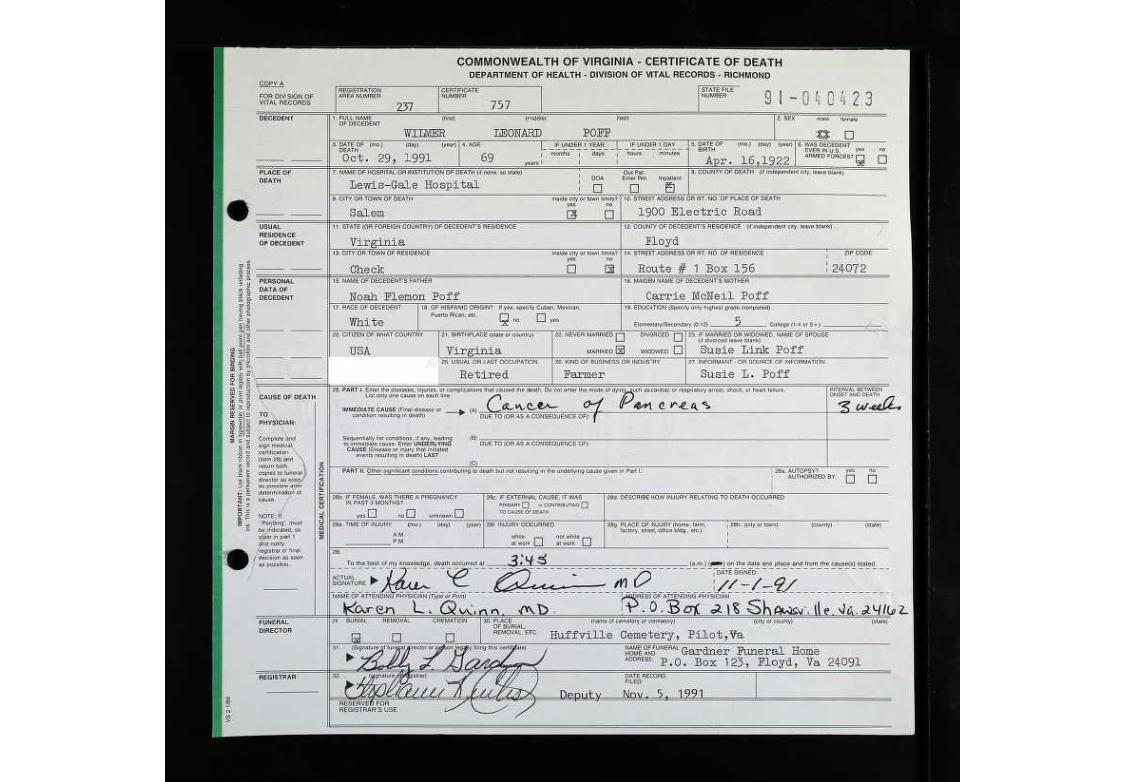 COMMONWEALTH OF VIRGINIA - CERTIFICATE OF DEATH
DEPARTMENT OF HEALTH - DIVISION OF VITAL RECORDS - RICHMOND
COPY A
FOR DIVISION OF VITAL RECORDS
REGISTRATION AREA NUMBER 237 CERTIFICATE NUMBER 757 STATE FILE NUMBER 91-040423
DECEDENT
1. FULL NAME OF DECEDENT (first) (middle) (last) 2. SEX male female
WILMER LEONARD POFF
3. DATE OF DEATH (mo.) (day) (year) 4. AGE IF UNDER 1 YEAR IF UNDER 1 DAY 5. DATE OF BIRTH (mo.) (day) (year) 6. WAS DECEDENT EVER IN U.S. ARMED FORCES? yes no
months days hours minutes
Oct. 29, 1991 69 years Apr. 16,1922
PLACE OF DEATH
7. NAME OF HOSPITAL OR INSTITUTION OF DEATH (if none, so state) DOA Out Pat. Emer Rm Inpatient 8. COUNTY OF DEATH (if independent city, leave blank)
Lewis-Gale Hospital
9. CITY OR TOWN OF DEATH inside city or town limits? yes no 10. STREET ADDRESS OR RT. NO. OF PLACE OF DEATH
Salem 1900 Electric Road
USUAL RESIDENCE OF DECEDENT
11. STATE (OR FOREIGN COUNTRY) OF DECEDENT'S RESIDENCE 12. COUNTY OF DECEDENT'S RESIDENCE (if independent city, leave blank)
Virginia Floyd
13. CITY OR TOWN OF RESIDENCE inside city or town limits? yes no 14. STREET ADDRESS OR RT. NO. OF RESIDENCE ZIP CODE
Check Route # 1 Box 156 24072
PERSONAL DATA OF DECEDENT
15. NAME OF DECEDENT'S FATHER 16. MAIDEN NAME OF DECEDENT'S MOTHER
Noah Flemon Poff Carrie McNeil Poff
17. RACE OF DECEDENT 18. OF HISPANIC ORIGIN? If yes, specify Cuban, Mexican, Puerto Rican, etc. no yes 19. EDUCATION (Specify only highest grade completed)
White Elementary/Secondary (0-12) 5 College (1-4 or 5+)
20. CITIZEN OF WHAT COUNTRY 21. BIRTHPLACE (state or country) 22. NEVER MARRIED DIVORCED 23. IF MARRIED OR WIDOWED, NAME OF SPOUSE (if divorced leave blank)
USA Virginia MARRIED WIDOWED Susie Link Poff
25. USUAL OR LAST OCCUPATION 26. KIND OF BUSINESS OR INDUSTRY 27. INFORMANT - OR SOURCE OF INFORMATION
Retired Farmer Susie L. Poff
CAUSE OF DEATH
28. PART I. Enter the diseases, injuries, or complications that caused the death. Do not enter the mode of dying, such as cardiac or respiratory arrest, shock, or heart failure. List only one cause on each line. INTERVAL BETWEEN ONSET AND DEATH
IMMEDIATE CAUSE (Final disease or condition resulting in death) (A) Cancer of Pancreas 3 weeks
DUE TO (OR AS A CONSEQUENCE OF):
TO PHYSICIAN:
Complete and sign medical certification (item 28) and return both copies to funeral director as soon as possible after determination of cause.
Sequentially list conditions, if any, leading to immediate cause. Enter UNDERLYING CAUSE (Disease or injury that initiated events resulting in death) LAST
(B)
DUE TO (OR AS A CONSEQUENCE OF):
(C)
MEDICAL CERTIFICATION
PART II. Other significant conditions contributing to death but not resulting in the underlying cause given in Part I. 28a. AUTOPSY? AUTHORIZED BY: yes no
28b. IF FEMALE, WAS THERE A PREGNANCY IN PAST 3 MONTHS? 28c. IF EXTERNAL CAUSE, IT WAS 28d. DESCRIBE HOW INJURY RELATING TO DEATH OCCURRED
yes no unknown PRIMARY or CONTRIBUTING TO CAUSE OF DEATH
NOTE: If "Pending" must be indicated, so state in part 1 and notify registrar of final decision as soon as possible.
28e. TIME OF INJURY (mo.) (day) (year) 28f. INJURY OCCURRED 28g. PLACE OF INJURY (home, farm, factory, street, office bldg., etc.) 28h. (city or town) (county) (state)
A.M. P.M. while at work not while at work
To the best of my knowledge, death occurred at 3:45 (a.m.) on the date and place and from the cause(s) stated.
ACTUAL SIGNATURE Karen L Quinn MD DATE SIGNED 11-1-91
NAME OF ATTENDING PHYSICIAN (Type or Print) ADDRESS OF ATTENDING PHYSICIAN
Karen L. Quinn, MD. P.O. Box 218 Shawsville, Va. 24162
FUNERAL DIRECTOR
29. BURIAL REMOVAL CREMATION 30. PLACE OF BURIAL, REMOVAL, ETC. (name of cemetery or crematory) (city or county) (state)
Huffville Cemetery, Pilot,Va
31. (Signature of funeral director or person legally filing this certificate) NAME OF FUNERAL HOME AND ADDRESS: Gardner Funeral Home
P.O. Box 123, Floyd, Va 24091
REGISTRAR
32. (signature of registrar) DATE RECORD FILED:
Deputy Nov. 5, 1991
RESERVED FOR REGISTRAR'S USE
MARGIN RESERVED FOR BINDING
VS 2 1/89